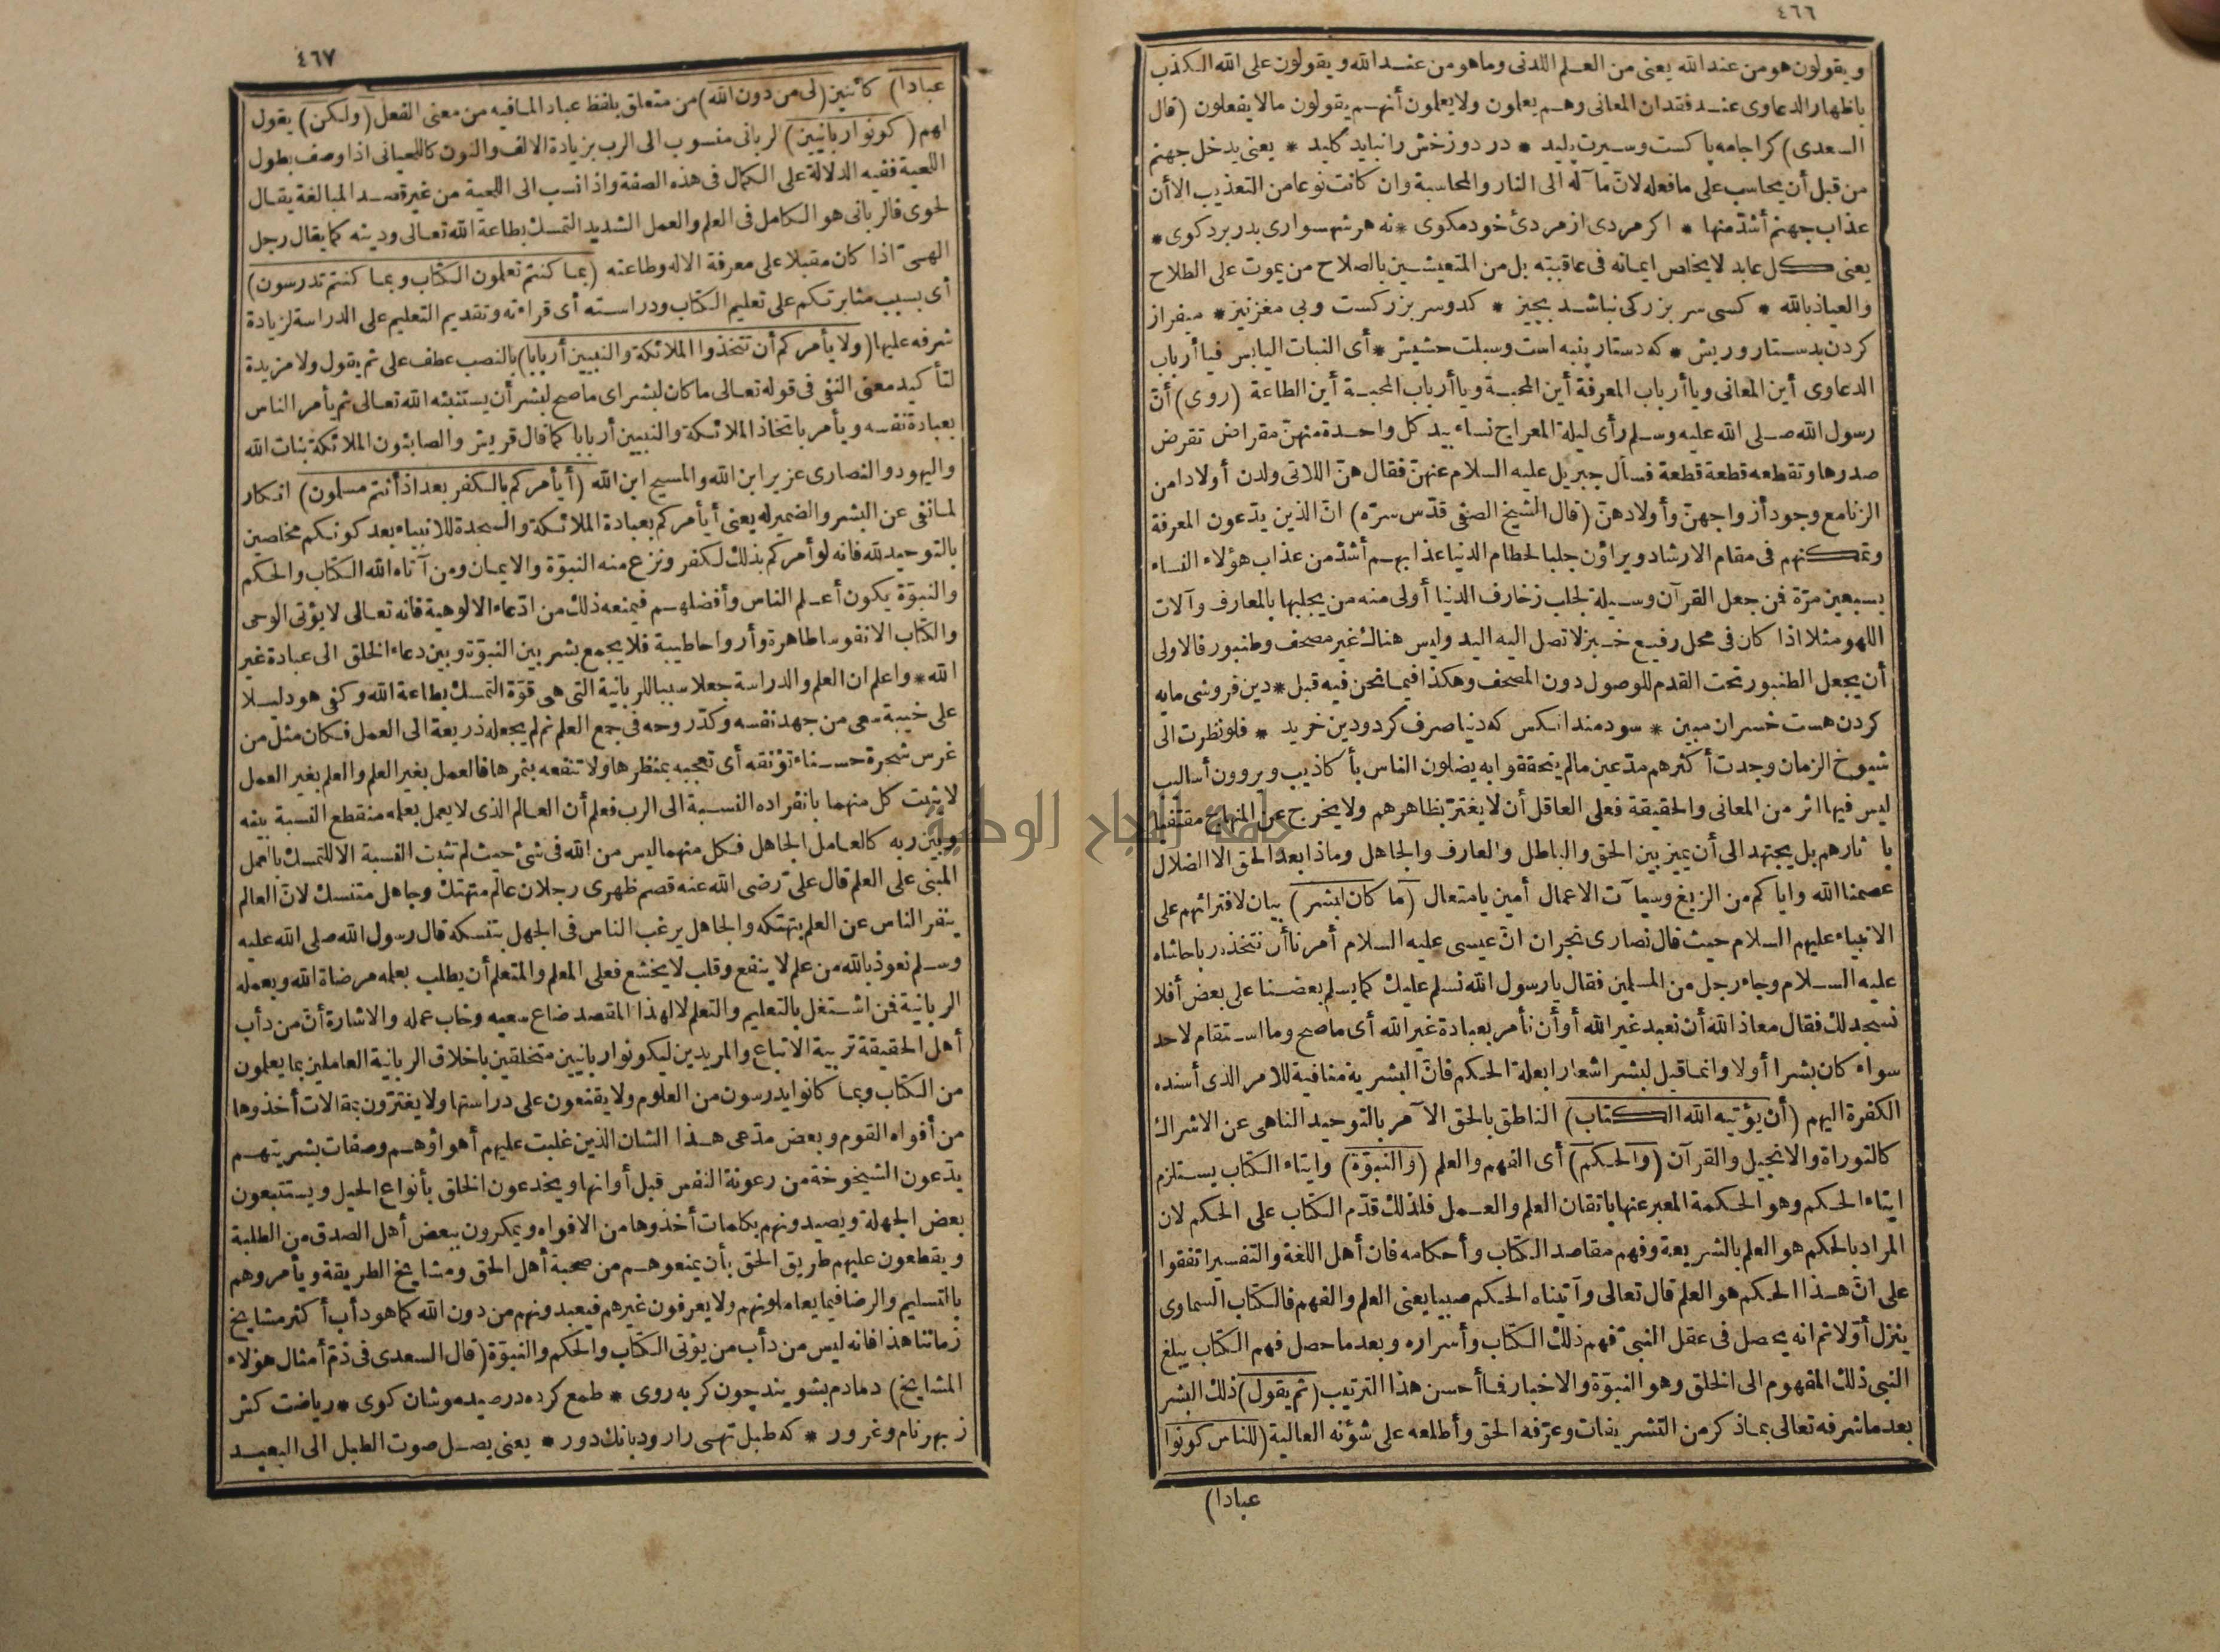 ٤٦٦
ويقولون هو من عند الله يعنى من العلم اللدنى وما هو من عند الله ويقولون على الله الكذب
باظهار الدعاوى عند فقدان المعانى وهم يعلمون ولا يعلمون أنهم يقولون مالا يفعلون (قال
السعدى) كرا جامه پاكست وسيرت پليد * در دوزخش را نبايد كليد * يعنى يدخل جهنم
من قبل أن يحاسب على ما فعله لانّ مآله الى النار والمحاسبة وان كانت نوعا من التعذيب الا أن
عذاب جهنم أشدّ منها * اكر مردى از مردئ خود مكوى * نه هر شهسوارى بدر برد كوى *
يعنى كل عابد لا يخلص ايمانه فى عاقبته بل من المتعيشين بالصلاح من يموت على الطلاح
والعياذ بالله * كسى سر بزركى نباشد بچيز * كدو سر بزركست وبى مغز نيز * ميفراز
كردن بدستار وريش * كه دستار پنبه است وسبلت حشيش * أى النبات اليابس فيا أرباب
الدعاوى أين المعانى ويا أرباب المعرفة أين المحبة ويا أرباب المحبة أين الطاعة (روى) أنّ
رسول الله صلى الله عليه وسلم رأى ليلة المعراج نساء بيد كل واحدة منهنّ مقراض تقرض
صدرها وتقطعه قطعة قطعة فسأل جبريل عليه السلام عنهنّ فقال هنّ اللاتى ولدن أولادا من
الزنا مع وجود أزواجهنّ وأولادهنّ (قال الشيخ الصفى قدّس سرّه) انّ الذين يدّعون المعرفة
وتمكنهم فى مقام الارشاد ويراؤن جلبا لحطام الدنيا عذابهم أشدّ من عذاب هؤلاء النساء
بسبعين مرّة فمن جعل القرآن وسيلة لجلب زخارف الدنيا أولى منه من يجلبها بالمعارف وآلات
اللهو مثلا اذا كان فى محل رفيع خبز لا تصل اليه اليد وليس هناك غير مصحف وطنبور فالاولى
أن يجعل الطنبور تحت القدم للوصول دون المصحف وهكذا فيما نحن فيه قيل * دين فروشى مايه
كردن هست خسران مبين * سودمند آنكس كه دنيا صرف كرد ودين خريد * فلو نظرت الى
شيوخ الزمان وجدت أكثرهم مدّعين مالم يتحققوا به يضلون الناس بأكاذيب ويروون أساليب
ليس فيها اثر من المعانى والحقيقة فعلى العاقل أن لا يغترّ بظاهرهم ولا يخرج عن المنهاج مقتفيا
بآثارهم بل يجتهد الى أن يميز بين الحق والباطل والعارف والجاهل وماذا بعد الحق الا الضلال
عصمنا الله واياكم من الزيغ وسيآت الاعمال أمين يا متعال (ما كان لبشر) بيان لافترائهم على
الانبياء عليهم السلام حيث قال نصارى نجران انّ عيسى عليه السلام أمرنا أن نتخذه ربا حاشاه
عليه السلام وجاء رجل من المسلمين فقال يا رسول الله نسلم عليك كما يسلم بعضنا على بعض أفلا
نسجد لك فقال معاذ الله أن نعبد غير الله أو أن نأمر بعبادة غير الله أى ما صح وما استقام لاحد
سواء كان بشرا أولا وانما قيل لبشر اشعارا بعلة الحكم فانّ البشرية منافية للامر الذى أسنده
الكفرة اليهم (أن يؤتيه الله الكتاب) الناطق بالحق الآمر بالتوحيد الناهى عن الاشراك
كالتوراة والانجيل والقرآن (والحكم) أى الفهم والعلم (والنبوّة) وايتاء الكتاب يستلزم
ايتاء الحكم وهو الحكمة المعبر عنها باتقان العلم والعمل فلذلك قدّم الكتاب على الحكم لان
المراد بالحكم هو العلم بالشريعة وفهم مقاصد الكتاب وأحكامه فان أهل اللغة والتفسير اتفقوا
على انّ هذا الحكم هو العلم قال تعالى وآتيناه الحكم صبيا يعنى العلم والفهم فالكتاب السماوى
ينزل أوّلا ثم انه يحصل فى عقل النبىّ فهم ذلك الكتاب وأسراره وبعد ما حصل فهم الكتاب يبلغ
النبى ذلك المفهوم الى الخلق وهو النبوّة والاخبار فما أحسن هذا الترتيب (ثم يقول) ذلك البشر
بعد ما شرفه تعالى بما ذكر من التشريفات وعرّفه الحق وأطلعه على شؤنه العالية (للناس كونوا
عبادا)
٤٦٧
عبادا) كائنين (لى من دون الله) من متعلق بلفظ عبادا لما فيه من معنى الفعل (ولكن) يقول
لهم (كونوا ربانيين) الربانى منسوب الى الرب بزيادة الالف والنون كاللحيانى اذا وصف بطول
اللحية ففيه الدلالة على الكمال فى هذه الصفة واذا نسب الى اللحية من غير قصد المبالغة يقال
لحوى فالربانى هو الكامل فى العلم والعمل الشديد التمسك بطاعة الله تعالى ودينه كما يقال رجل
الهىّ اذا كان مقبلا على معرفة الاله وطاعته (بما كنتم تعلمون الكتاب وبما كنتم تدرسون)
أى بسبب مثابرتكم على تعليم الكتاب ودراسته أى قراءته وتقديم التعليم على الدراسة لزيادة
شرفه عليها (ولا يأمركم أن تتخذوا الملائكة والنبيين أربابا) بالنصب عطف على ثم يقول ولا مزيدة
لتأكيد معنى النفى فى قوله تعالى ما كان لبشر اى ما صح لبشر أن يستنبئه الله تعالى ثم يأمر الناس
بعبادة نفسه ويأمر باتخاذ الملائكة والنبيين أربابا كما قال قريش والصابئون الملائكة بنات الله
واليهود والنصارى عزير ابن الله والمسيح ابن الله (أيأمركم بالكفر بعد اذ أنتم مسلمون) انكار
لما نفى عن البشر والضمير له يعنى أيأمركم بعبادة الملائكة والسجدة للانبياء بعد كونكم مخلصين
بالتوحيد لله فانه لو أمركم بذلك لكفر ونزع منه النبوّة والايمان ومن آتاه الله الكتاب والحكم
والنبوّة يكون أعلم الناس وأفضلهم فيمنعه ذلك من ادّعاء الالوهية فانه تعالى لا يؤتى الوحى
والكتاب الا نفوسا طاهرة وأرواحا طيبة فلا يجمع بشر بين النبوّة وبين دعاء الخلق الى عبادة غير
الله * واعلم ان العلم والدراسة جعلا سببا للربانية التى هى قوّة التمسك بطاعة الله وكفى هو دليلا
على خيبة سعى من جهد نفسه وكدّ روحه فى جمع العلم ثم لم يجعله ذريعة الى العمل فكان مثل من
غرس شجرة حسناء تؤنقه أى تعجبه بمنظرها ولا تنفعه بثمرها فالعمل بغير العلم والعلم بغير العمل
لا يثبت كل منهما بانفراده النسبة الى الرب فعلم أن العالم الذى لا يعمل بعلمه منقطع النسبة بينه
وبين ربه كالعامل الجاهل فكل منهما ليس من الله فى شئ حيث لم تثبت النسبة الا للتمسك بالعمل
المبنى على العلم قال علىّ رضى الله عنه قصم ظهرى رجلان عالم متهتك وجاهل متنسك لانّ العالم
ينفر الناس عن العلم بتهتكه والجاهل يرغب الناس فى الجهل بتنسكه قال رسول الله صلى الله عليه
وسلم نعوذ بالله من علم لا ينفع وقلب لا يخشع فعلى المعلم والمتعلم أن يطلب بعلمه مرضاة الله وبعمله
الربانية فمن اشتغل بالتعليم والتعلم لا لهذا المقصد ضاع سعيه وخاب عمله والاشارة أنّ من دأب
أهل الحقيقة تربية الاتباع والمريدين ليكونوا ربانيين متخلقين باخلاق الربانية العاملين بما يعلمون
من الكتاب وبما كانوا يدرسون من العلوم ولا يقنعون على دراستها ولا يغترّون بمقالات أخذوها
من أفواه القوم وبعض مدّعى هذا الشان الذين غلبت عليهم أهواؤهم وصفات بشريتهم
يدّعون الشيخوخة من رعونة النفس قبل أوانها ويخدعون الخلق بأنواع الحيل ويستتبعون
بعض الجهلة ويصيدونهم بكلمات أخذوها من الافواه ويمكرون ببعض أهل الصدق من الطلبة
ويقطعون عليهم طريق الحق بأن يمنعوهم من صحبة أهل الحق ومشايخ الطريقة ويأمروهم
بالتسليم والرضا فيما يعاملونهم ولا يعرفون غيرهم فيعبدونهم من دون الله كما هو دأب أكثر مشايخ
زماننا هذا فانه ليس من دأب من يؤتى الكتاب والحكم والنبوّة (قال السعدى فى ذمّ أمثال هؤلاء
المشايخ) دمادم بشويند چون كربه روى * طمع كرده در صيد موشان كوى * رياضت كش
ز بهر نام وغرور * كه طبل تهى را رود بانك دور * يعنى يصل صوت الطبل الى البعيد